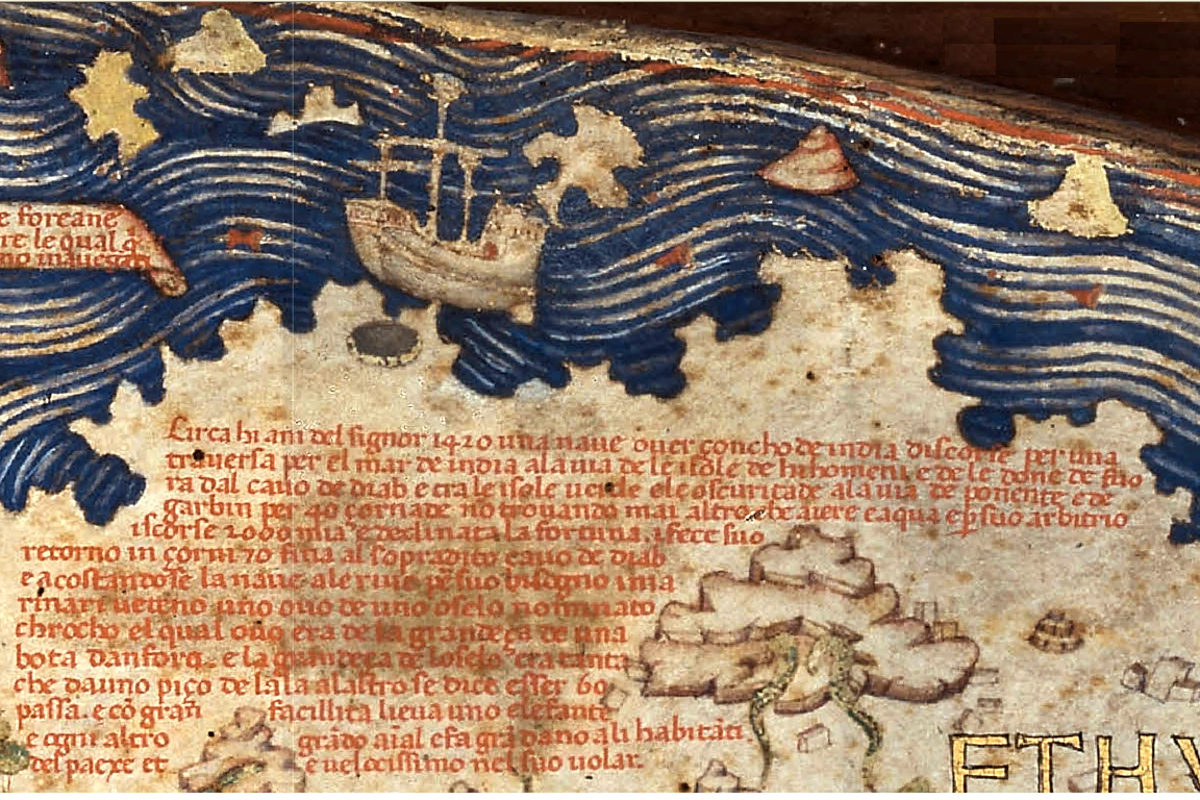 e foreane
re le qual q̃
no inauega
Circa hi ani del signor 1420 una naue ouer çoncho de india discorse per una
trauersa per el mar de india ala uia de le isole de hi homeni e de le done de fuo
ra dal cauo de diab e tra le isole uerde e le oscuritade ala uia de ponente e de
garbin per 40 çornade no trouando mai altro che aiere e aqua e p̱ suo arbitrio
iscorse 2000 mia e declinata la fortuna i fece suo
retorno in çorni 70 fina al sopradito cauo de diab
e acostandose la naue a le riue per suo bisogno i ma
rinari uedeno uno ouo de uno oselo nominato
chrocho el qual ouo era de la grandeça de una
bota danfora e la grandeça de loselo era tanta
che dauno piço de lala alaltro se dice esser 60
passa. e cõ gran facillita lieua uno elefante
e ogni altro grãdo aial e fa grã dano a li habitãti
del paexe et e uelocissimo nel suo uolar.
ETHY